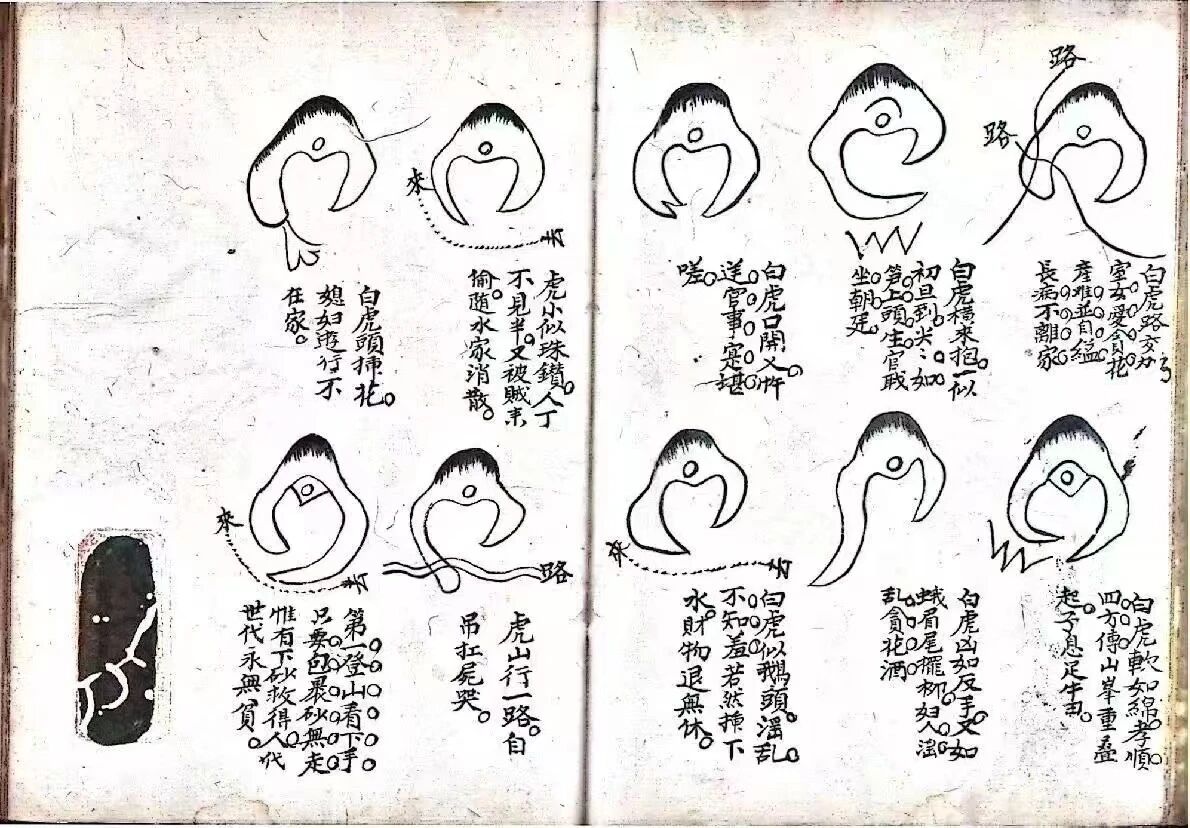 路
路
白虎路交加
室女愛貪花
產難並自縊
長病不離家
白虎橫來抱。一似
初旦到尖尖如
笋上頭生官職
坐朝廷。
白虎口開又忤
逆官事定堪
嗟。
來
虎小似珠鑽。人丁
不見半。又被賊來
偷。随水家消散。
白虎頭揷花。
媳妇逕行不
在家。
白虎軟如綿。孝順
四方傳山峯重叠
起。子息足牛田。
白虎凶如反手。又如
蛾眉尾擺柳。妇人滛
乱貪花酒
來
去
白虎似鵝頭。滛乱
不知羞若然揀下
水。財物退無休。
路
虎山行一路。自
吊扛屍哭。
來
去
第一登山看下手
只要包裹砂無走
惟有下砂救得人。代
世代承無貧。